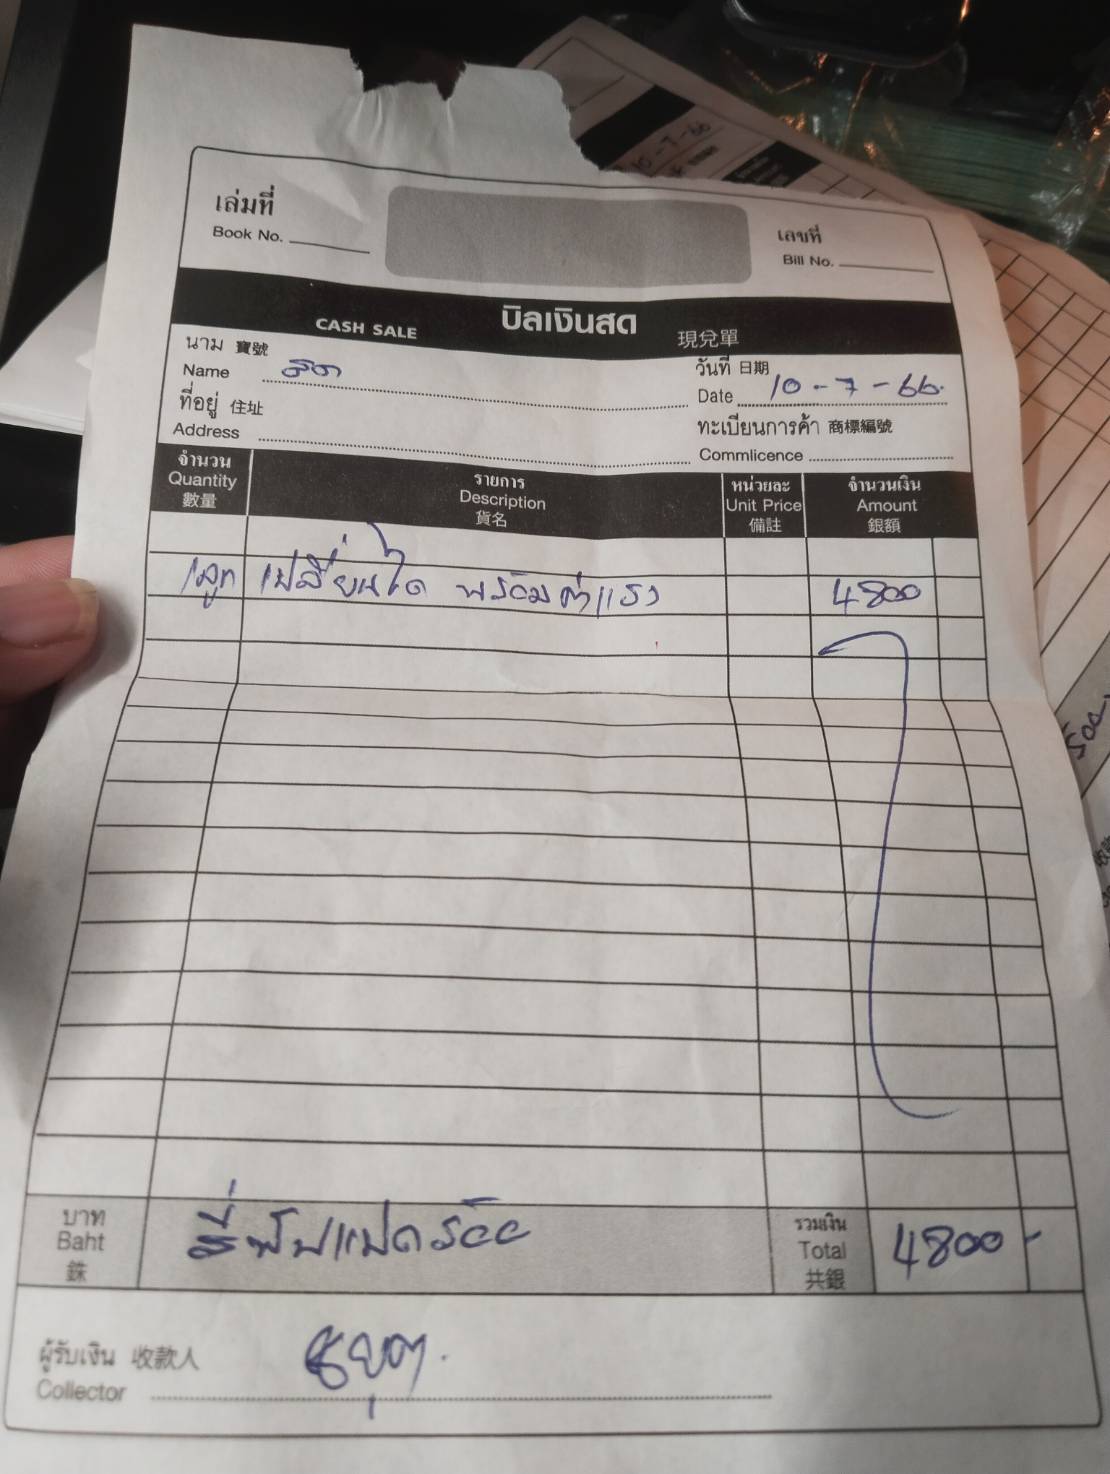 เล่มที่
Book No.
เลขที่
Bill No.
CASH SALE บิลเงินสด 現兌單
นาม 寶號
Name
วันที่ 日期
Date 10-7-66.
ที่อยู่ 住址
Address
ทะเบียนการค้า 商標編號
Commlicence
จำนวน รายการ หน่วยละ จำนวนเงิน
Quantity Description Unit Price Amount
數量 貨名 備註 銀額
1ลูก เปลี่ยนได พร้อมค่าแรง 4800
บาท
Baht
銖
สี่พันแปดร้อย
รวมเงิน
Total
共銀
4800-
ผู้รับเงิน 收款人
Collector
10-7-66